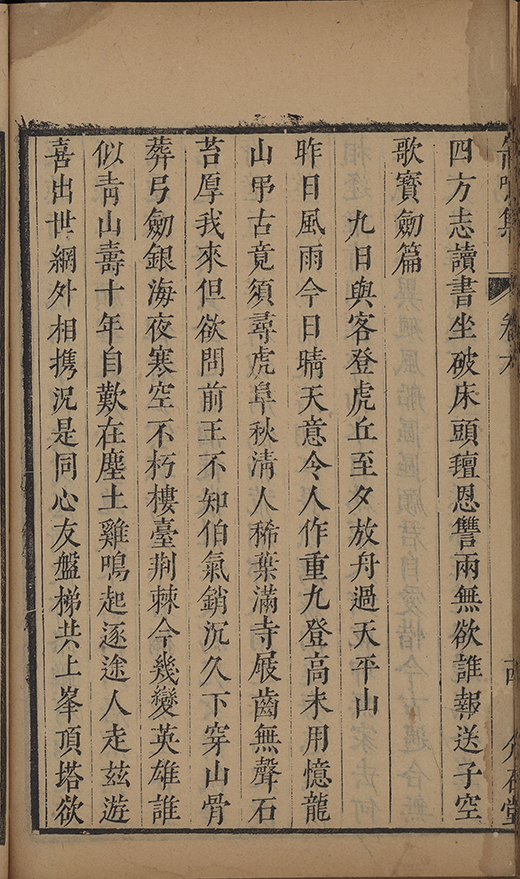 集 卷六
四方志讀書坐破床頭氊恩讐兩無欲誰報送子空
歌寳劒篇
九日與客登虎丘至夕放舟過天平山
昨日風雨今日晴天意令人作重九登高未用憶龍
山弔古竟須尋虎阜秋清人稀葉滿寺屐齒無聲石
苔厚我來但欲問前王不知伯氣銷沉久下穿山骨
葬弓劒銀海夜寒空不朽樓臺荆棘今幾變英雄誰
似青山壽十年自歎在塵土雞鳴起逐途人走茲遊
喜出世網外相携況是同心友盤梯共上峯頂塔欲